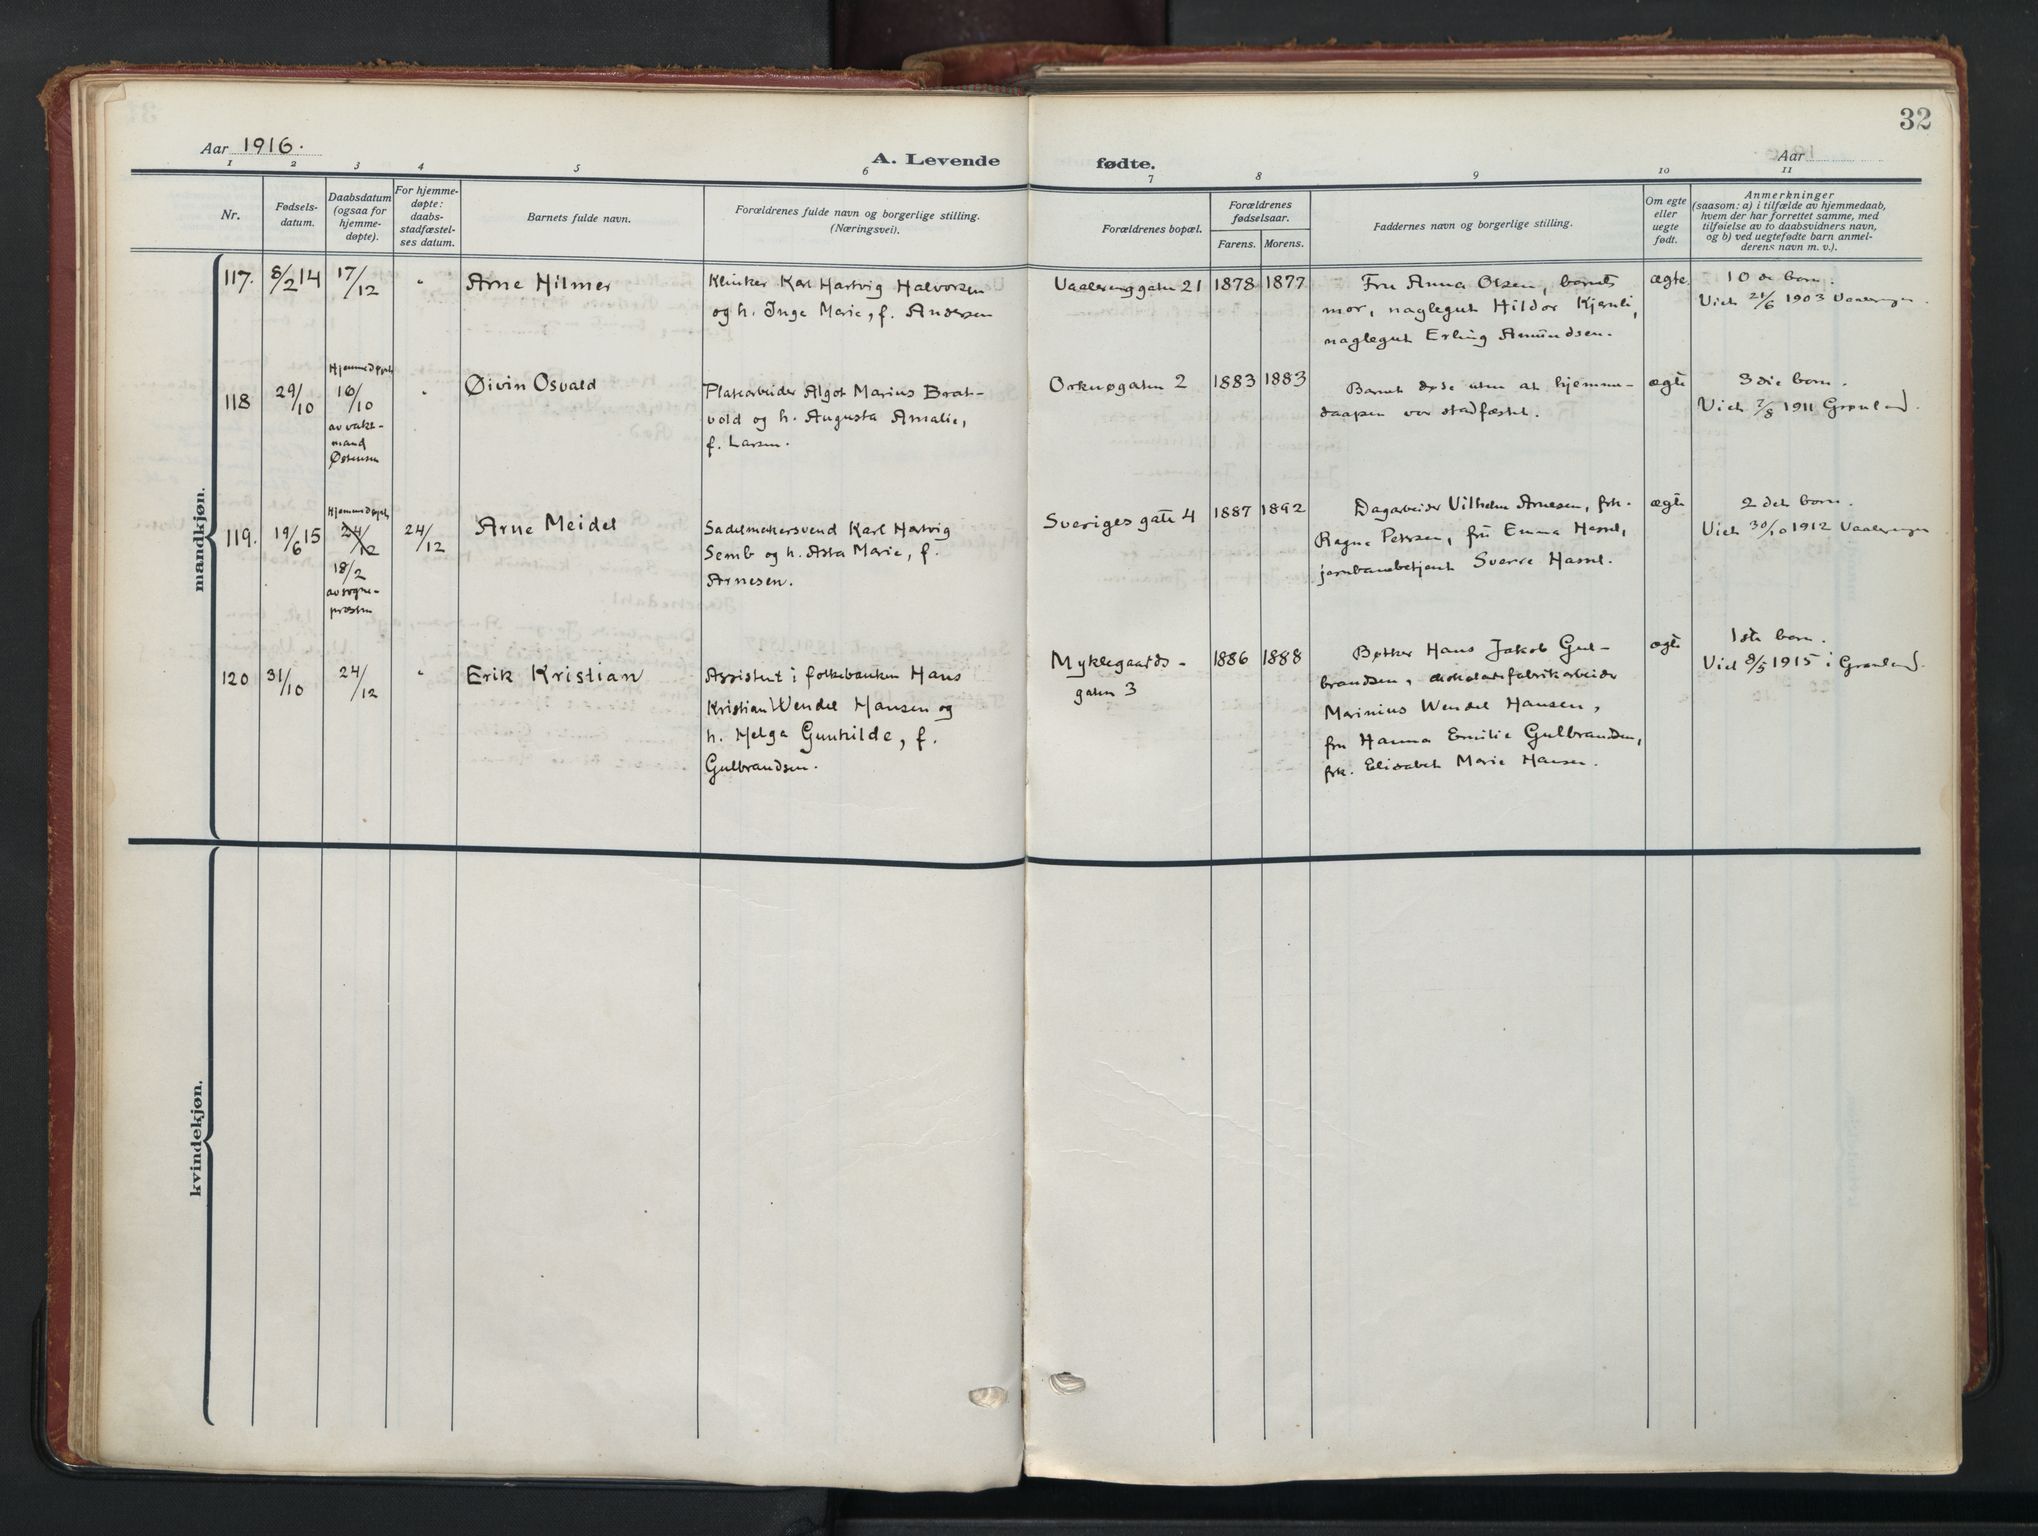 32
Aar 1916.
A. Levende
fødte.
Aar
1 2 3 4 5 6 7 8 9 10 11
Nr.
Fødsels-
datum.
Daabsdatum
(ogsaa for
hjemme-
døpte).
For hjemme-
døpte:
daabs-
stadfæstel-
ses datum.
Barnets fulde navn.
Forældrenes fulde navn og borgerlige stilling.
(Næringsvei).
Forældrenes bopæl.
Forældrenes
fødselsaar.
Farens. Morens.
Faddernes navn og borgerlige stilling.
Om egte
eller
uegte
født.
Anmerkninger
(saasom: a) i tilfælde av hjemmedaab,
hvem der har forrettet samme, med
tilføielse av to daabsvidners navn,
og b) ved uegtefødte barn anmel-
derens navn m. v.).
mandkjøn.
117.
8/2 14
17/12
"
Arne Hilmer
Klinker Karl Hartvig Halvorsen
og h. Inga Marie, f. Andersen
Vaalerenggaten 21
1878 1877
Fru Anna Olsen, barnets
mor, naglegut Hildor Kjenli,
naglegut Erling Amundsen.
ægte.
10 de barn.
Viet 21/6 1903 Vaalerengen.
118
29/10
Hjemmedøpt
16/10
av vakt-
mand
Østensen
"
Øivin Osvald
Platearbeider Algot Marius Brat-
vold og h. Augusta Amalie,
f. Larsen.
Orknøgaten 2
1883 1883
Barnet døde uten at hjemme-
daapen var stadfæstet.
ægte
3 die barn.
Viet 7/8 1911 Grønland.
119.
19/6 15
Hjemmedøpt
24/12
18/2
av sogne-
presten
24/12
Arne Meidel
Sadelmakersvend Karl Hartvig
Semb og h. Asta Marie, f.
Arnesen.
Sveriges gate 4
1887 1892
Dagarbeider Vilhelm Arnesen, frk.
Ragna Petersen, fru Emma Hassel,
jernbanebetjent Sverre Hassel.
ægte
2 det barn.
Viet 30/10 1912 Vaalerengen
120
31/10
24/12
"
Erik Kristian
Assistent i folkebanken Hans
Kristian Wendel Hansen og
h. Helga Gunhilde, f.
Gulbrandsen.
Myklegaards-
gaten 3
1886 1888
Bøtker Hans Jakob Gul-
brandsen, chokoladefabrikarbeider
Marinius Wendel Hansen,
fru Hanna Emilie Gulbrandsen,
frk. Elisabet Marie Hansen.
ægte
1ste barn.
Viet 8/5 1915 i Grønland.
kvindekjøn.